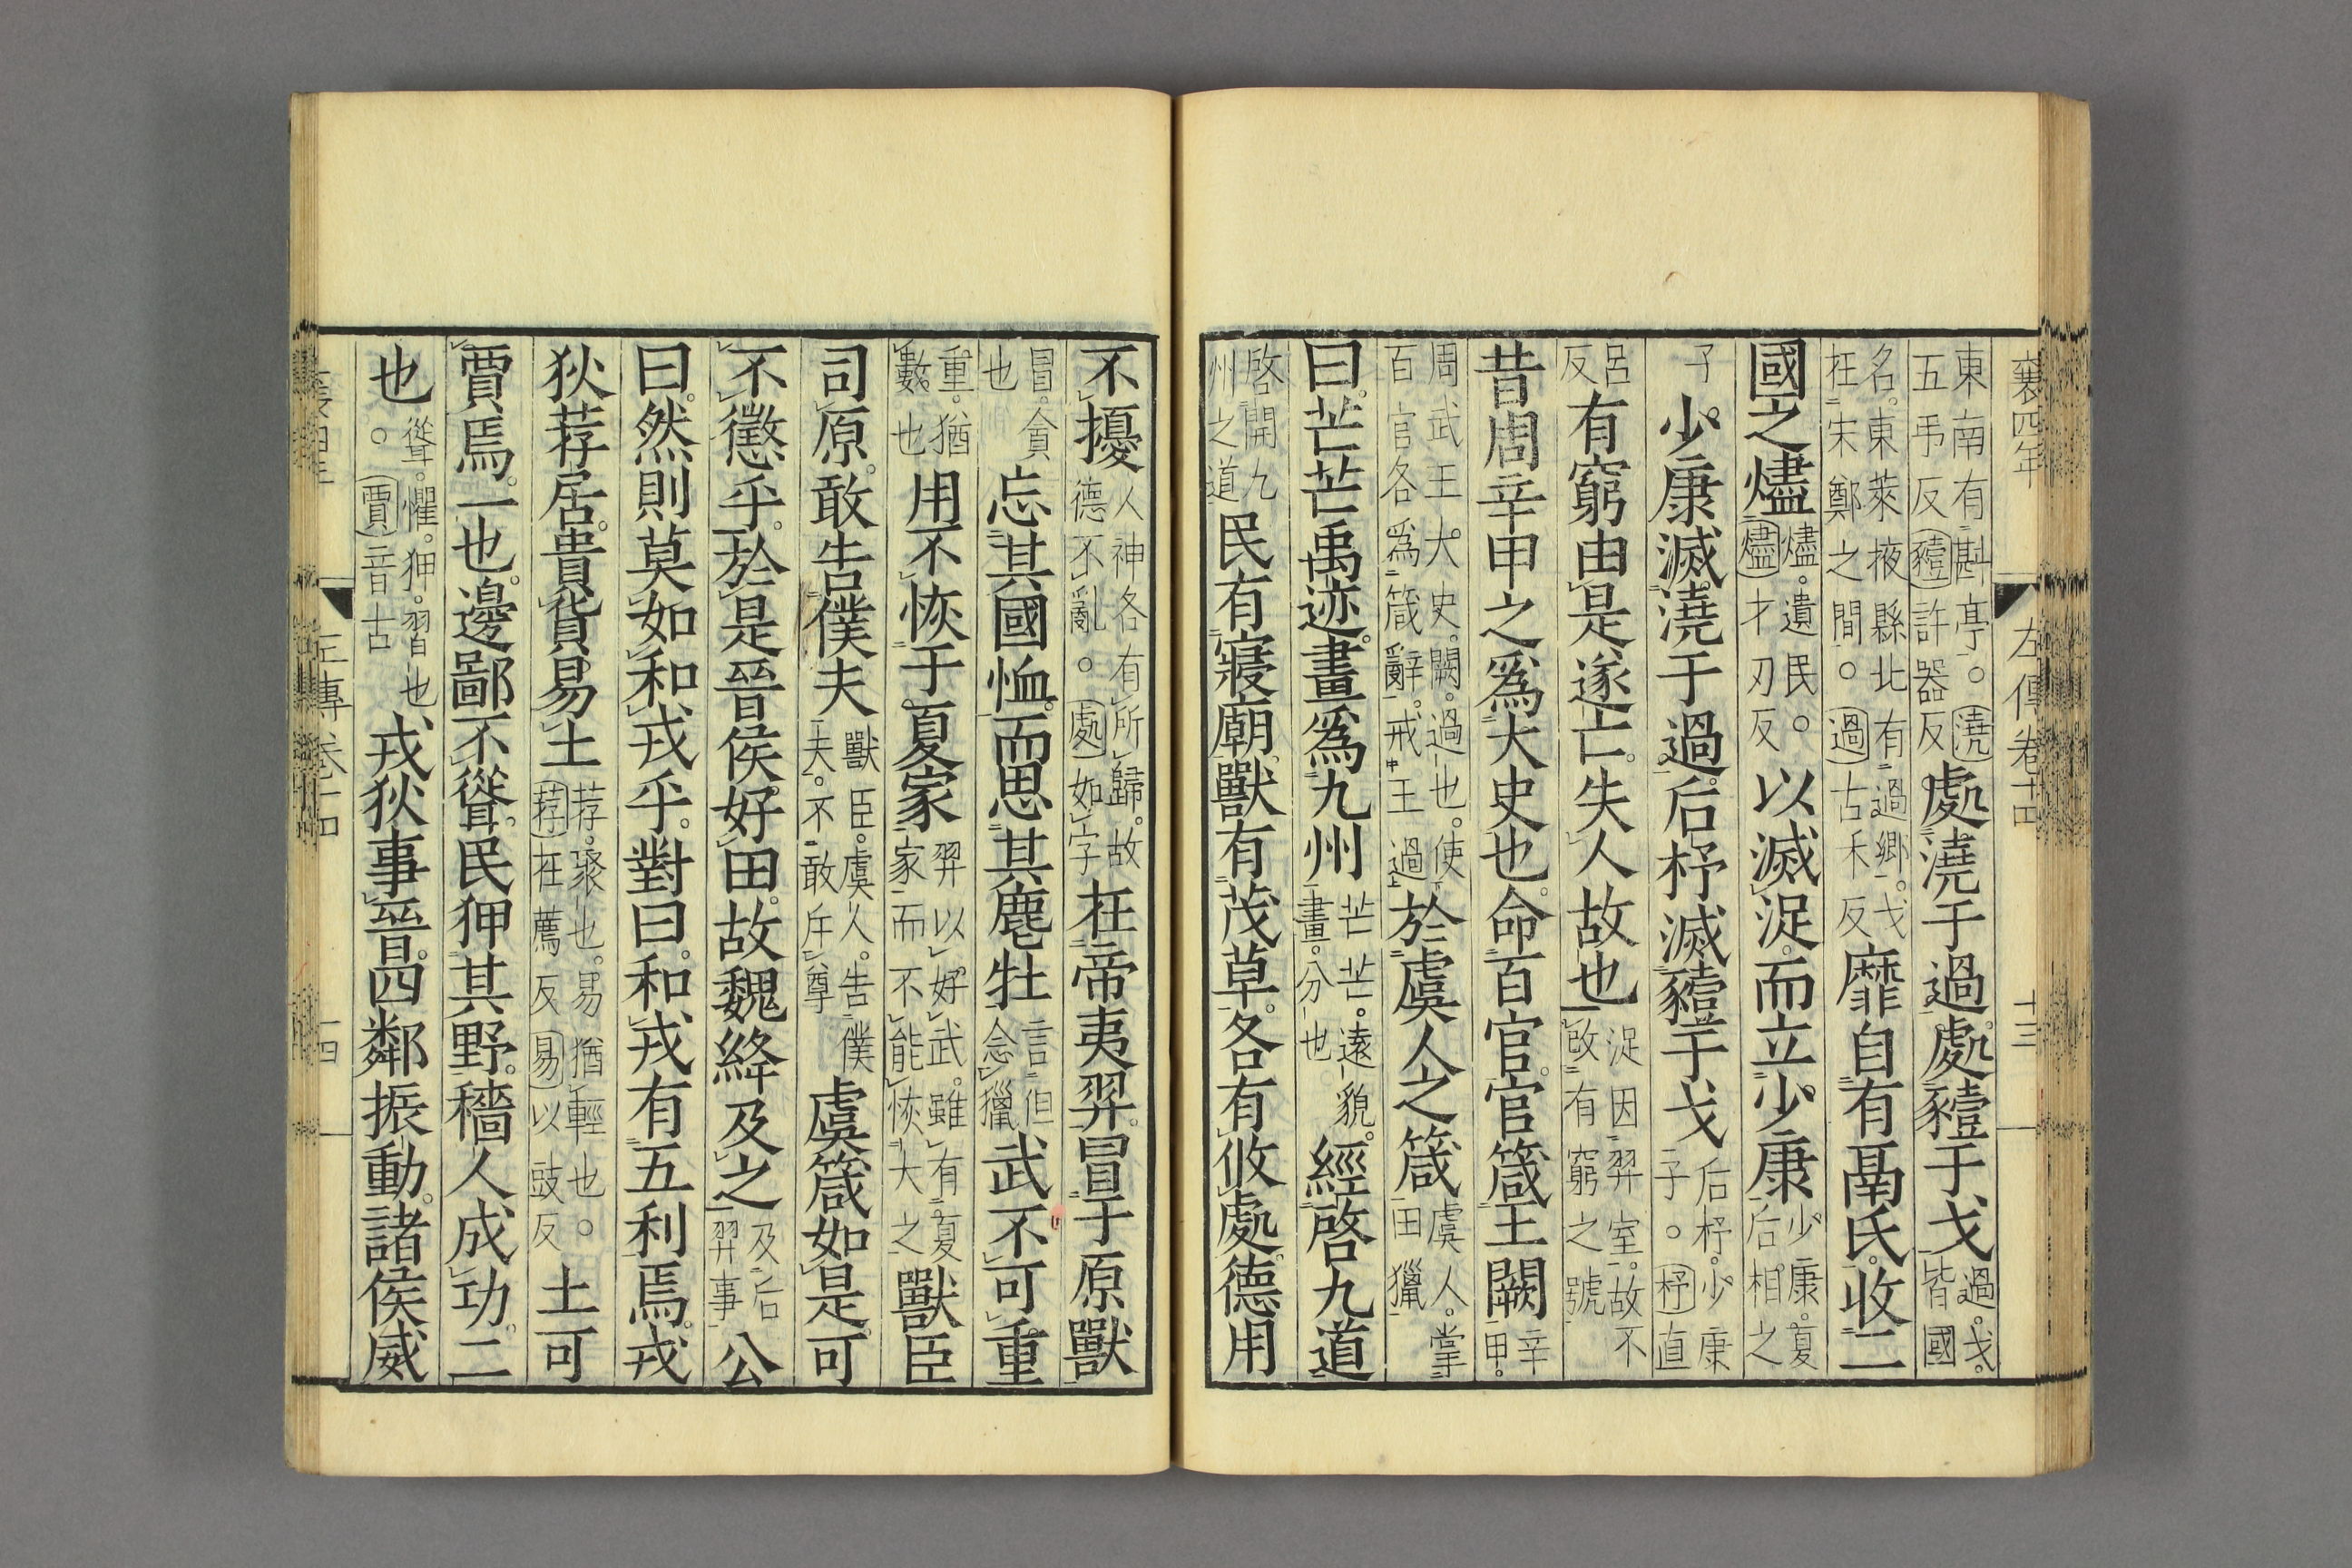 襄四年 左傳卷十四 十三
東南有斟亭。○澆五弔反豷許器反處澆于過。處豷于戈過。戈。皆國
名。東萊掖縣北有過鄉。戈在宋鄭之間。○過古禾反靡自有鬲氏。收二
國之燼燼。遺民。○燼才刃反以滅浞。而立少康少康。夏后相之
子少康滅澆于過。后杼滅豷于戈后杼。少康子。○杼直
呂反有窮由是遂亡。失人故也浞因羿室。故不改有窮之號
昔周辛甲之爲大史也。命百官。官箴王闕辛甲。
周武王大史。闕。過也。使百官各爲箴辭。戒王過於虞人之箴虞人。掌田獵
曰。芒芒禹迹。畫爲九州芒芒。遠貌。畫。分也經啓九道
啓開九州之道民有寢廟。獸有茂草。各有攸處。德用
不擾人神各有所歸。故德不亂。○處如字在帝夷羿。冒于原獸
冒。貪也忘其國恤。而思其麀牡言但念獵武不可重
重。猶數也用不恢于夏家羿以好武。雖有夏家而不能恢大之獸臣
司原。敢告僕夫獸臣。虞人。告僕夫。不敢斥尊虞箴如是。可
不懲乎。於是晉侯好田。故魏絳及之及后羿事公
曰。然則莫如和戎乎。對曰。和戎有五利焉。戎
狄荐居。貴貨易土荐。聚也。易猶輕也。○荐在薦反易以豉反土可
賈焉。一也。邊鄙不聳。民狎其野。穡人成功。二
也聳。懼。狎。習也○賈音古戎狄事晉。四鄰振動。諸侯威